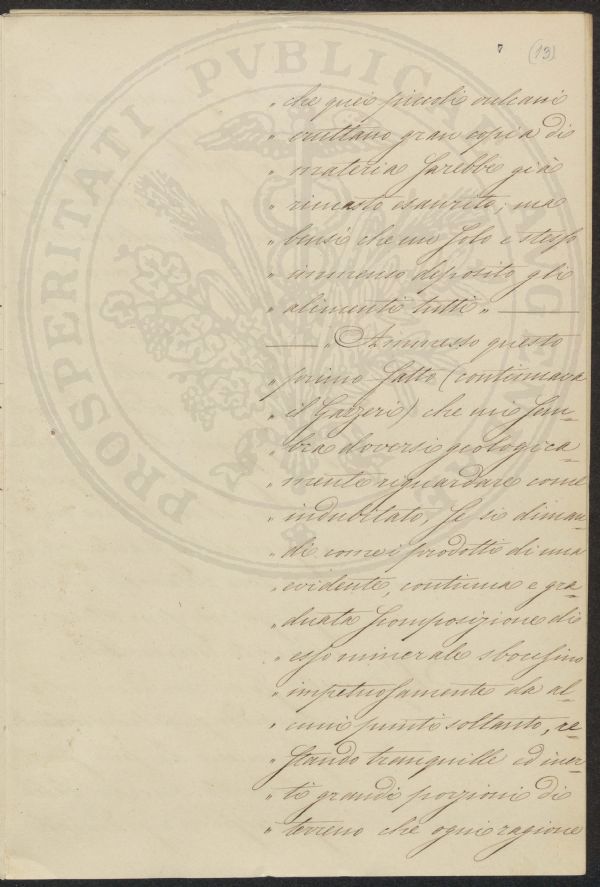 7 (13)
„ che quei piccoli vulcani
„ eruttano gran copia di
„ materia sarebbe già
„ rimasto esaurito; ma
„ bensì che un solo e stesso
„ immenso deposito gli
„ alimenti tutti „ ———
—— „ Ammesso questo
„ primo fatto (continuava
„ il Gazzeri) che mi sem-
„ bra doversi geologica-
„ mente riguardare come
„ indubitato, se si diman-
„ di come i prodotti di una
„ evidente, continua e gra-
„ duata scomposizione di
„ esso minerale sbocchino
„ impetuosamente da al-
„ cuni punti soltanto, re-
„ stando tranquille ed iner-
„ ti grandi porzioni di
„ terreno che ogni ragione
PROSPERITATI PVBLICAE AVGENDAE